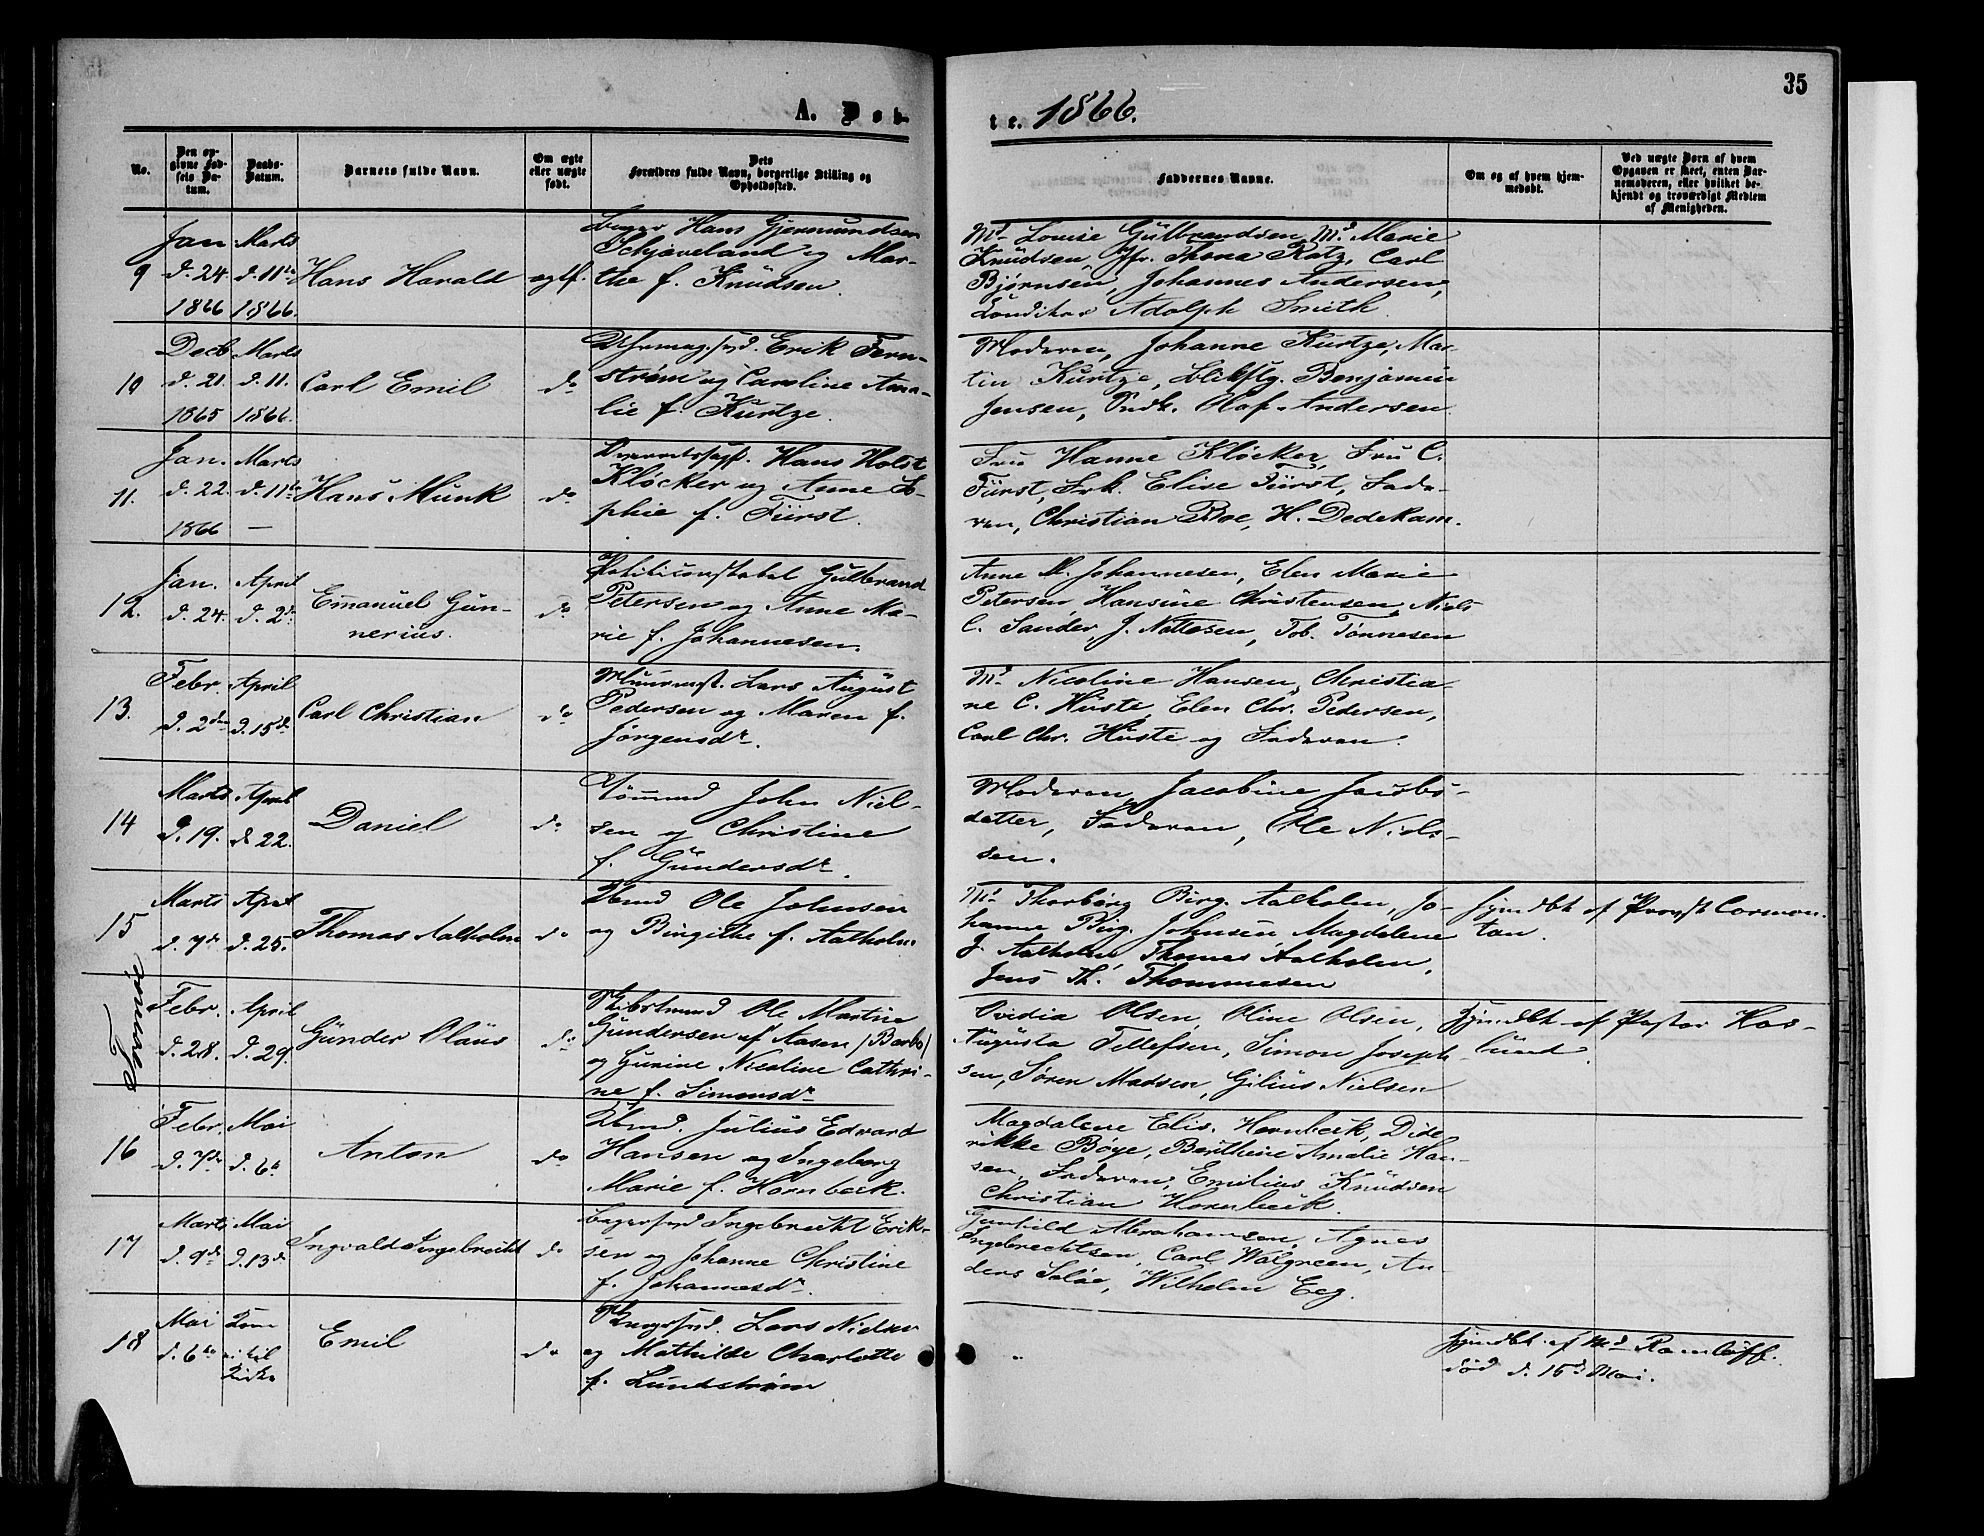 35
A. Døb-
te. 1866.
No.
Den opgivne Fødsels Datum.
Daabs-Datum.
Barnets fulde Navn.
Om ægte eller uægte født.
Dets Forældres fulde Navn, borgerlige Stilling og Opholdssted.
Faddernes Navne.
Om og af hvem hjemmedøbt.
Ved uægte Børn af hvem Opgaven er skeet, enten Barnemoderen, eller hvilket bekjendt og troværdigt Medlem af Menigheden.
9
Jan d. 24. 1866
Marts d. 11te 1866.
Hans Harald
ægtf.
Hans Gjermundsen
Schjaveland og Mar-
the f. Knudsen.
Md. Louise Gulbrandsen, Md. Marie
Knudsen, Jfr. Thona Katz, Carl
Bjørnsen, Johannes Andersen,
Konditor Adolph Smith.
10
Decb d. 21. 1865
Marts d. 11. 1866.
Carl Emil
do
Erik Fern-
strøm og Caroline Ama-
lie f. Kurtze.
Moderen, Johanne Kurtze, Mar-
tin Kurtze, Blikslg. Benjamin
Jensen, Sndk. Olaf Andersen
11.
Jan. d. 22. 1866
Marts d. 11te —
Hans Munk
do
Overretssagf. Hans Holst
Kløcker og Anne So-
phie f. Fürst.
Fru Hanne Kløcker, Fru C.
Fürst, Frk. Elise Fürst, Fade-
ren, Christian Boe, H. Dedekam.
12.
Jan. d. 24.
April d. 2d.
Emanuel Gun-
nerius.
do
Politiconstabel Gulbrand
Petersen og Anne Ma-
rie f. Johannesen.
Anne M. Johannesen, Elen Marie
Petersen, Hansine Christensen, Niels
C. Sander, J. Nattesen, Tob. Tønnesen
13.
Febr. d. 2den
April d. 15d.
Carl Christian
do
Muurmst. Lars August
Pedersen og Maren f.
Jørgensdr.
Md. Nicoline Hansen, Christia-
ne C. Huste, Elen Chr. Pedersen,
Carl Chr. Huste og Faderen.
14
Marts d. 19.
April d. 22.
Daniel
do
Tømmd John Niel-
sen og Christine
f. Gundersdr.
Moderen, Jacobine Jacobs-
datter, Faderen, Ole Niels-
sen.
15
Marts d. 7de
April d. 25.
Thomas Aalholm
do
Ole Johnsen
og Birgithe f. Aalholm
Md. Thorborg Birg. Aalholm, Jo-
hanne Birg. Johnsen, Magdalene
J. Aalholm, Thomas Aalholm,
Jens Th. Thommesen
hjmdbt af Provst Cormon-
tan.
Tromøe
Febr. d. 28.
April d. 29.
Gunder Olaus
do
Skibstmmd Ole Martin
Gundersen af Aasen (Barbo)
og Gunine Nicoline Cathri-
ne f. Simonsdr.
Ovidia Olsen, Oline Olsen,
Augusta Tellefsen, Simon Joseph-
sen, Søren Madsen, Gilius Nielsen
hjmdbt af Pastor Has-
lund.
16
Febr. d. 7de
Mai d. 6te
Anton
do
Julius Edvard
Hansen og Ingeborg
Marie f. Hornbeck.
Magdalene Elis. Hornbeck, Dide-
rikke Bøye, Berthine Amalie Han-
sen, Faderen, Emilius Knudsen
Christian Hornbeck.
17
Marts d. 9de
Mai d. 13d.
Ingvald Ingebrecht
do
Bagersvd Ingebrecht Erik-
sen og Johanne Christine
f. Johannesdr.
Gunhild Abrahamsen, Agnes
Ingebrechtsen, Carl Walgreen, An-
ders Saløe, Wilhelm Eeg.
18
Mai d. 6te
Kom ei til Kirke
Emil
do
Lars Nielsen
og Mathilde Charlotte
f. Lundstrøm
hjmdbt af Md. Ramløff.
død d. 15d Mai.